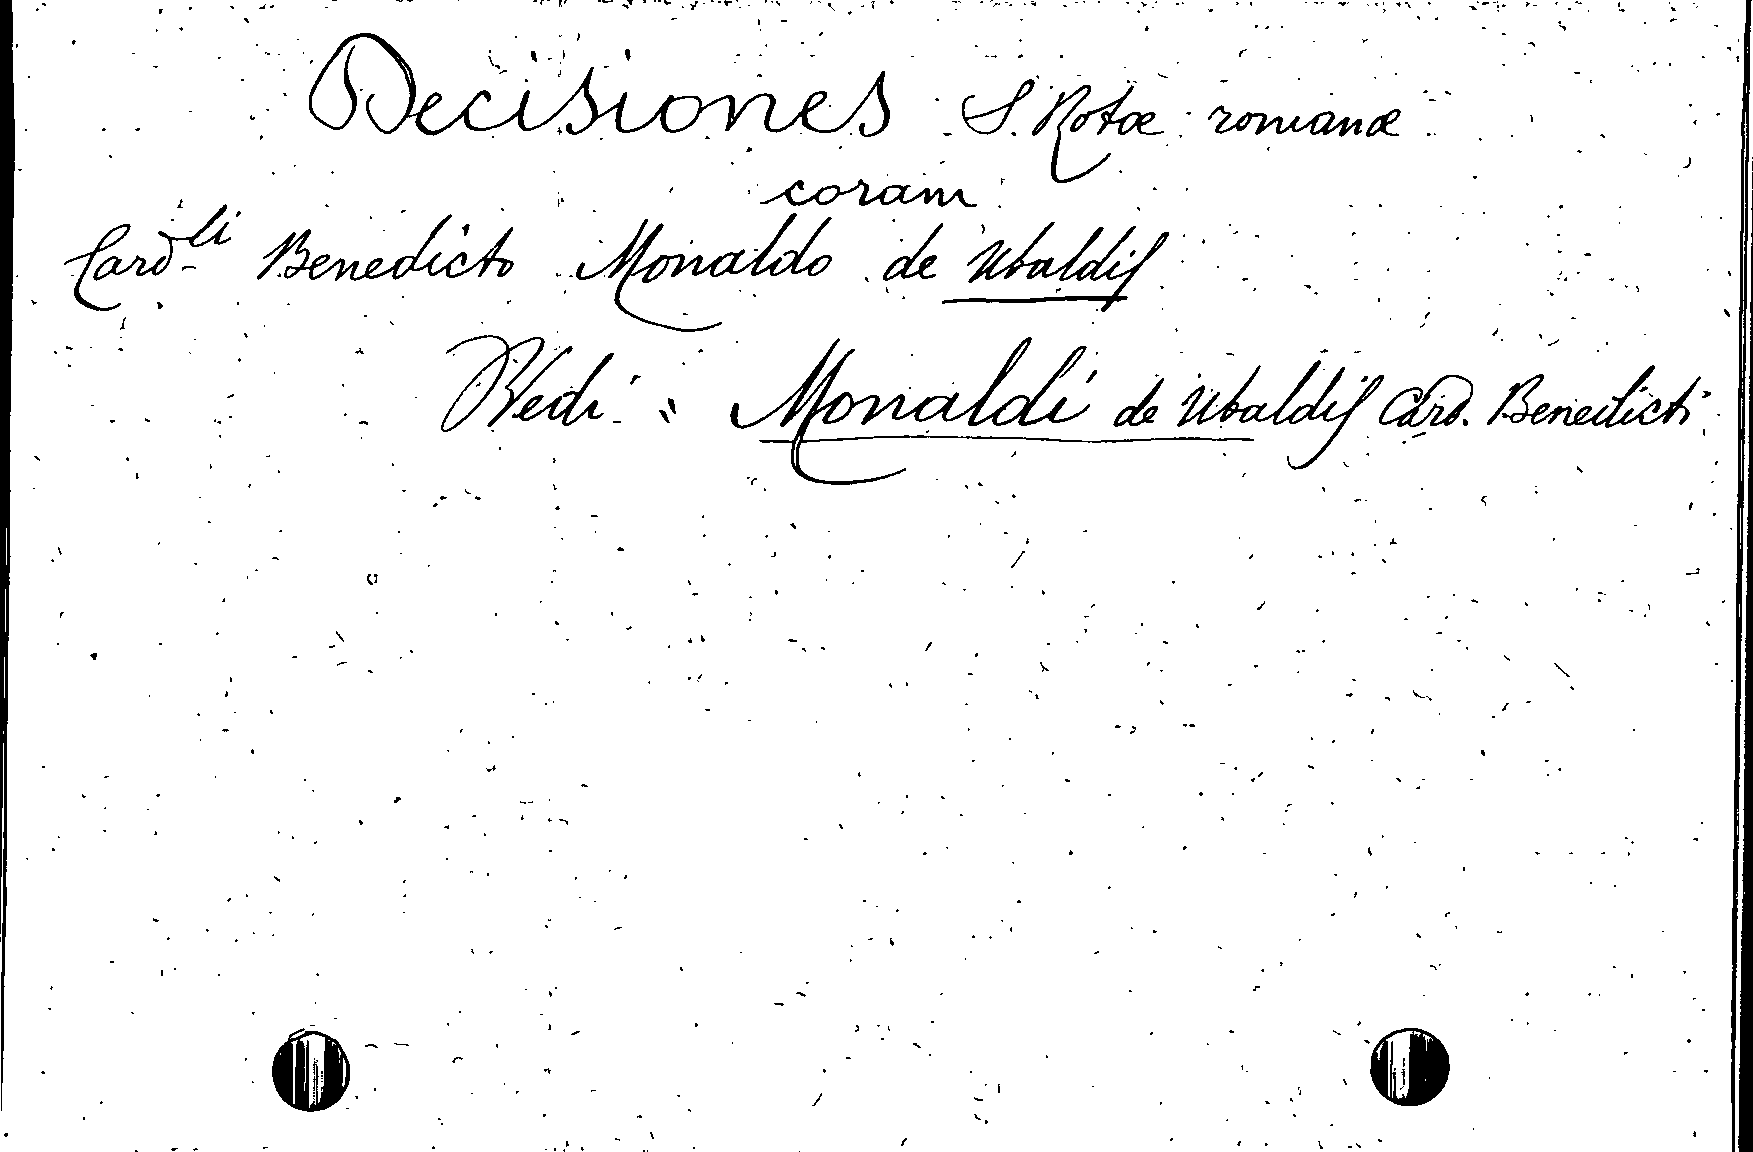 Decisiones S. Rotæ romanæ
coram
Card.li Benedicto Monaldo de Ubaldis
Vedi: Monaldi de Ubaldis Card. Benedicti